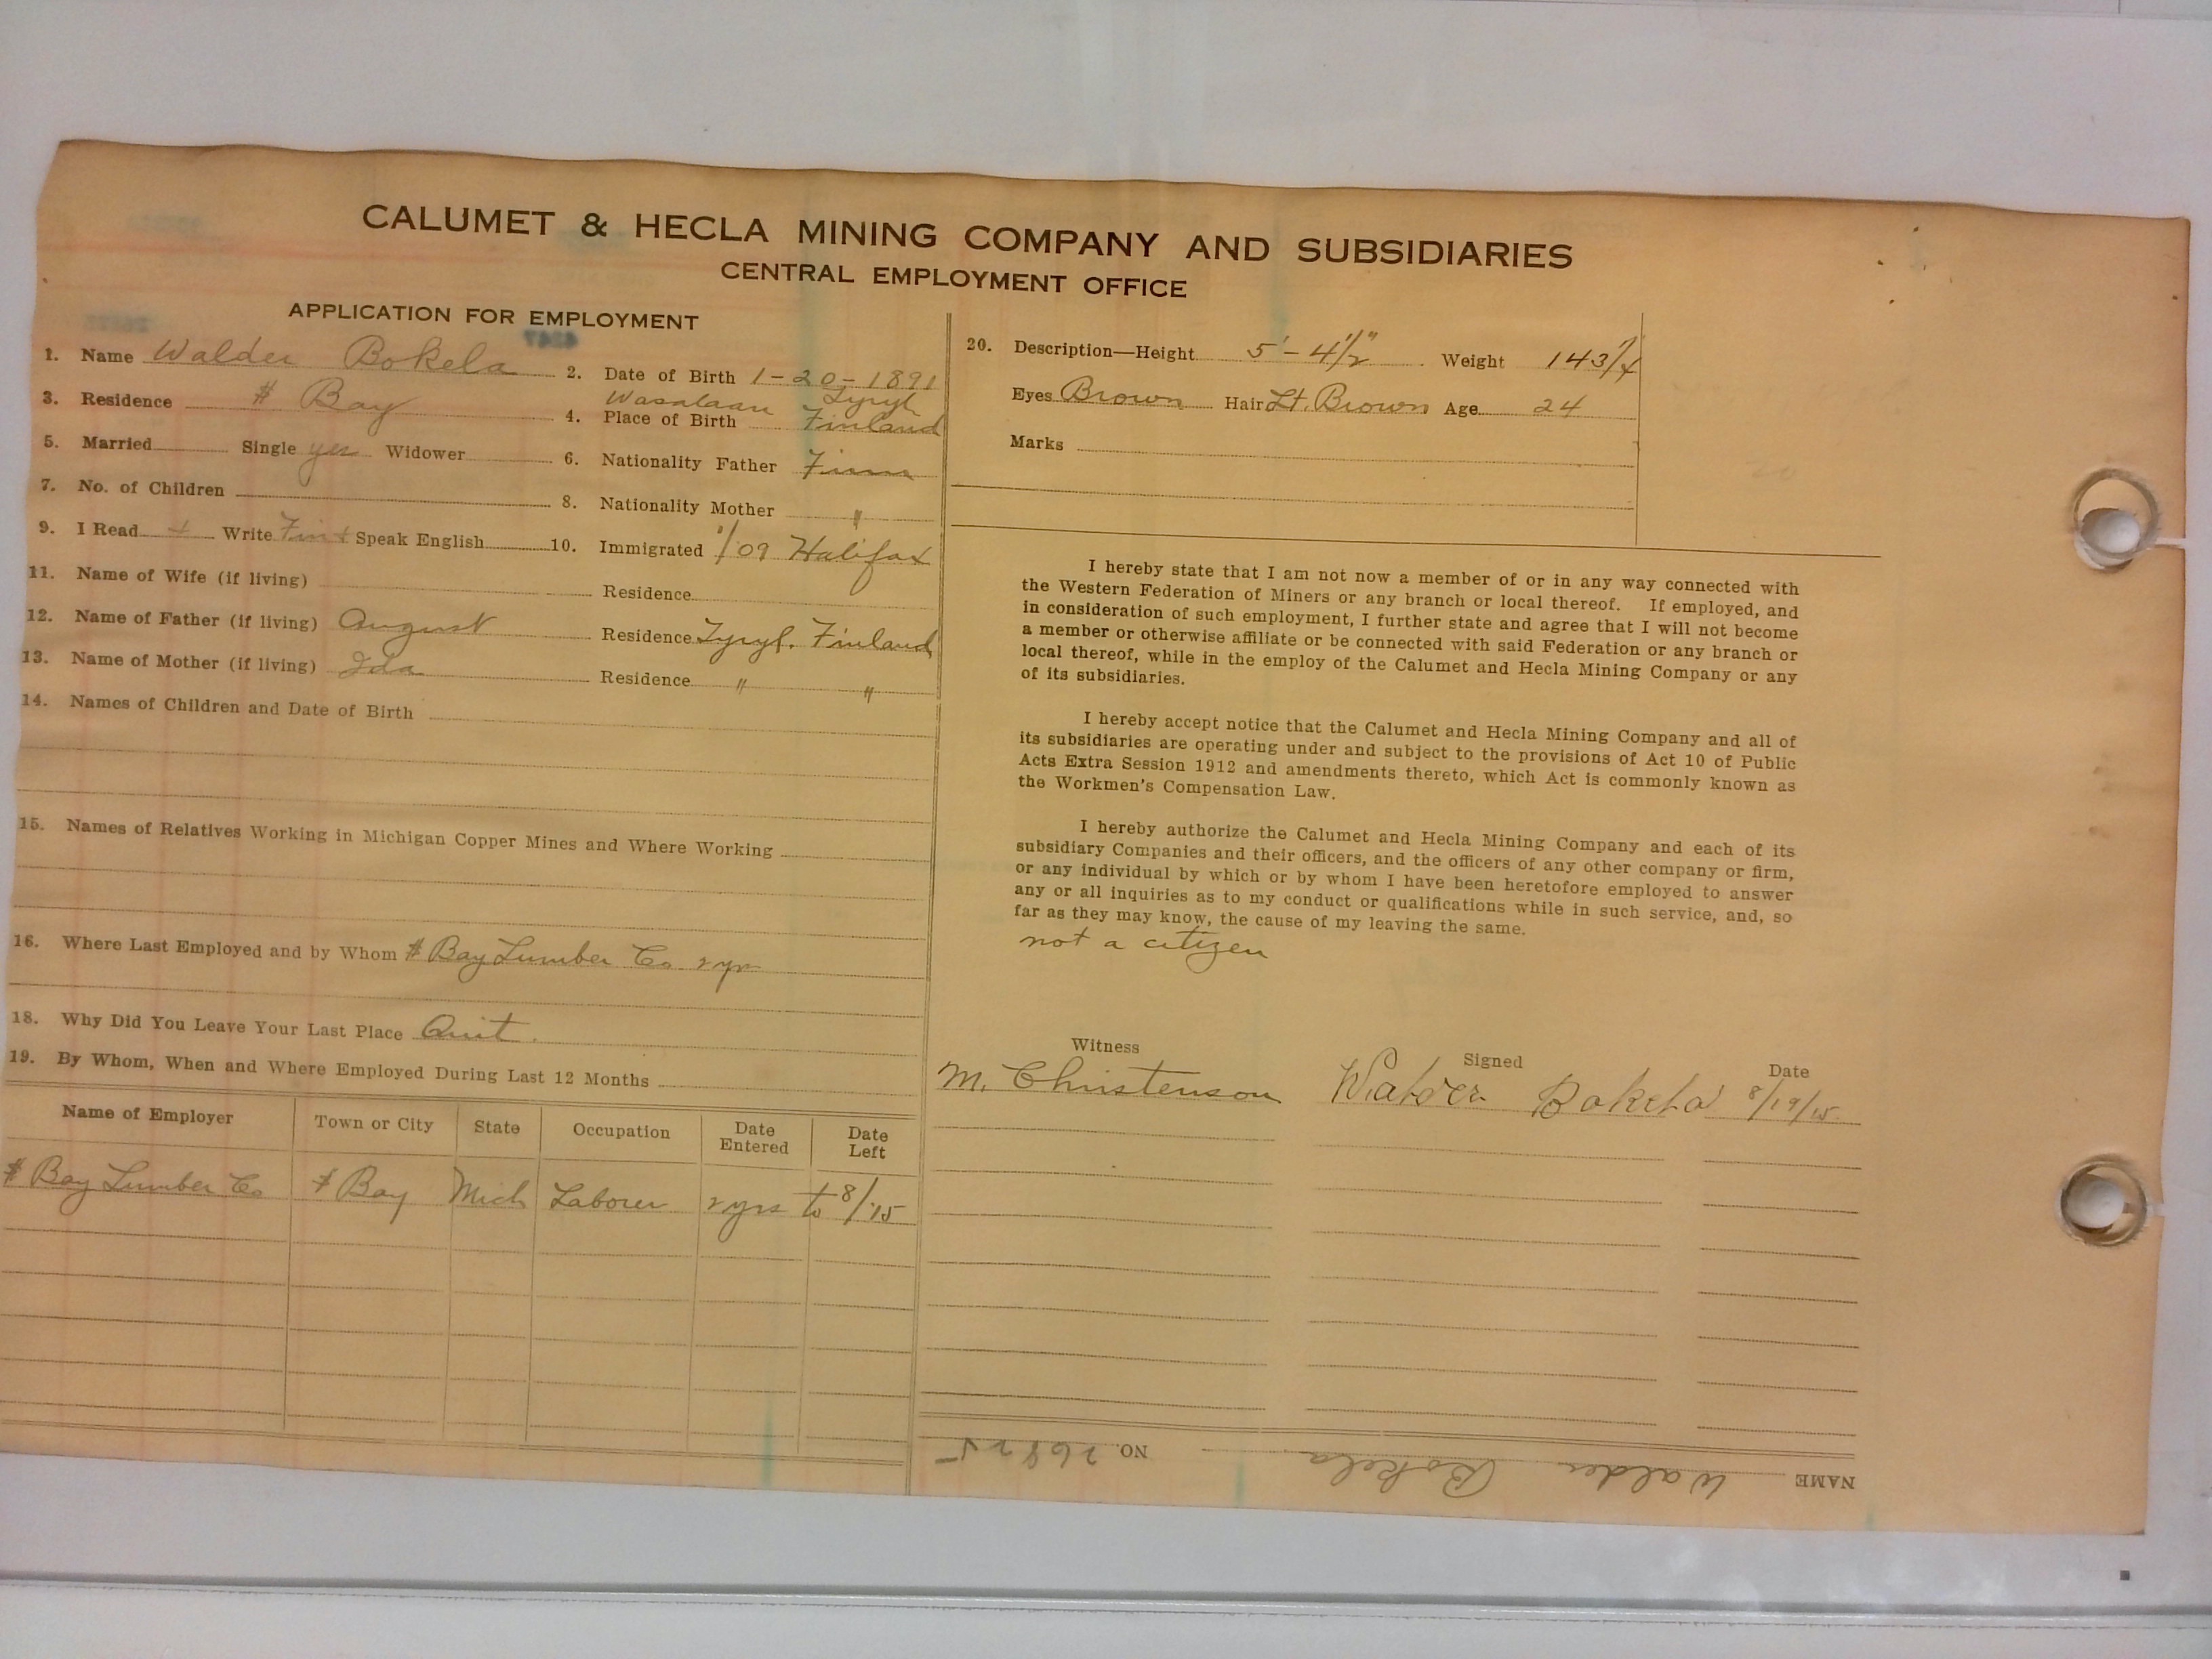 CALUMET & HECLA MINING COMPANY AND SUBSIDIARIES
CENTRAL EMPLOYMENT OFFICE
APPLICATION FOR EMPLOYMENT
1. Name Walder Bokela
2. Date of Birth 1-20-1891
3. Residence # Bay
Wasalaan Lyryl
4. Place of Birth Finland
5. Married Single yes Widower
6. Nationality Father Finn
7. No. of Children
8. Nationality Mother "
9. I Read + Write Fin + Speak English
10. Immigrated '09 Halifax
11. Name of Wife (if living) Residence
12. Name of Father (if living) August Residence Finland
13. Name of Mother (if living) Ida Residence " "
14. Names of Children and Date of Birth
15. Names of Relatives Working in Michigan Copper Mines and Where Working
16. Where Last Employed and by Whom # Bay Lumber Co 2 yrs
18. Why Did You Leave Your Last Place Quit.
19. By Whom, When and Where Employed During Last 12 Months
Name of Employer Town or City State Occupation Date Entered Date Left
# Bay Lumber Co # Bay Mich Laborer 2 yrs to 8/'15
20. Description—Height 5'-4½" Weight 143
Eyes Brown Hair Lt. Brown Age 24
Marks
I hereby state that I am not now a member of or in any way connected with
the Western Federation of Miners or any branch or local thereof. If employed, and
in consideration of such employment, I further state and agree that I will not become
a member or otherwise affiliate or be connected with said Federation or any branch or
local thereof, while in the employ of the Calumet and Hecla Mining Company or any
of its subsidiaries.
I hereby accept notice that the Calumet and Hecla Mining Company and all of
its subsidiaries are operating under and subject to the provisions of Act 10 of Public
Acts Extra Session 1912 and amendments thereto, which Act is commonly known as
the Workmen's Compensation Law.
I hereby authorize the Calumet and Hecla Mining Company and each of its
subsidiary Companies and their officers, and the officers of any other company or firm,
or any individual by which or by whom I have been heretofore employed to answer
any or all inquiries as to my conduct or qualifications while in such service, and, so
far as they may know, the cause of my leaving the same.
not a citizen
Witness Signed Date
M. Christenson Walder Bokela 8/19/15
NAME Walder Bokela NO. 26825